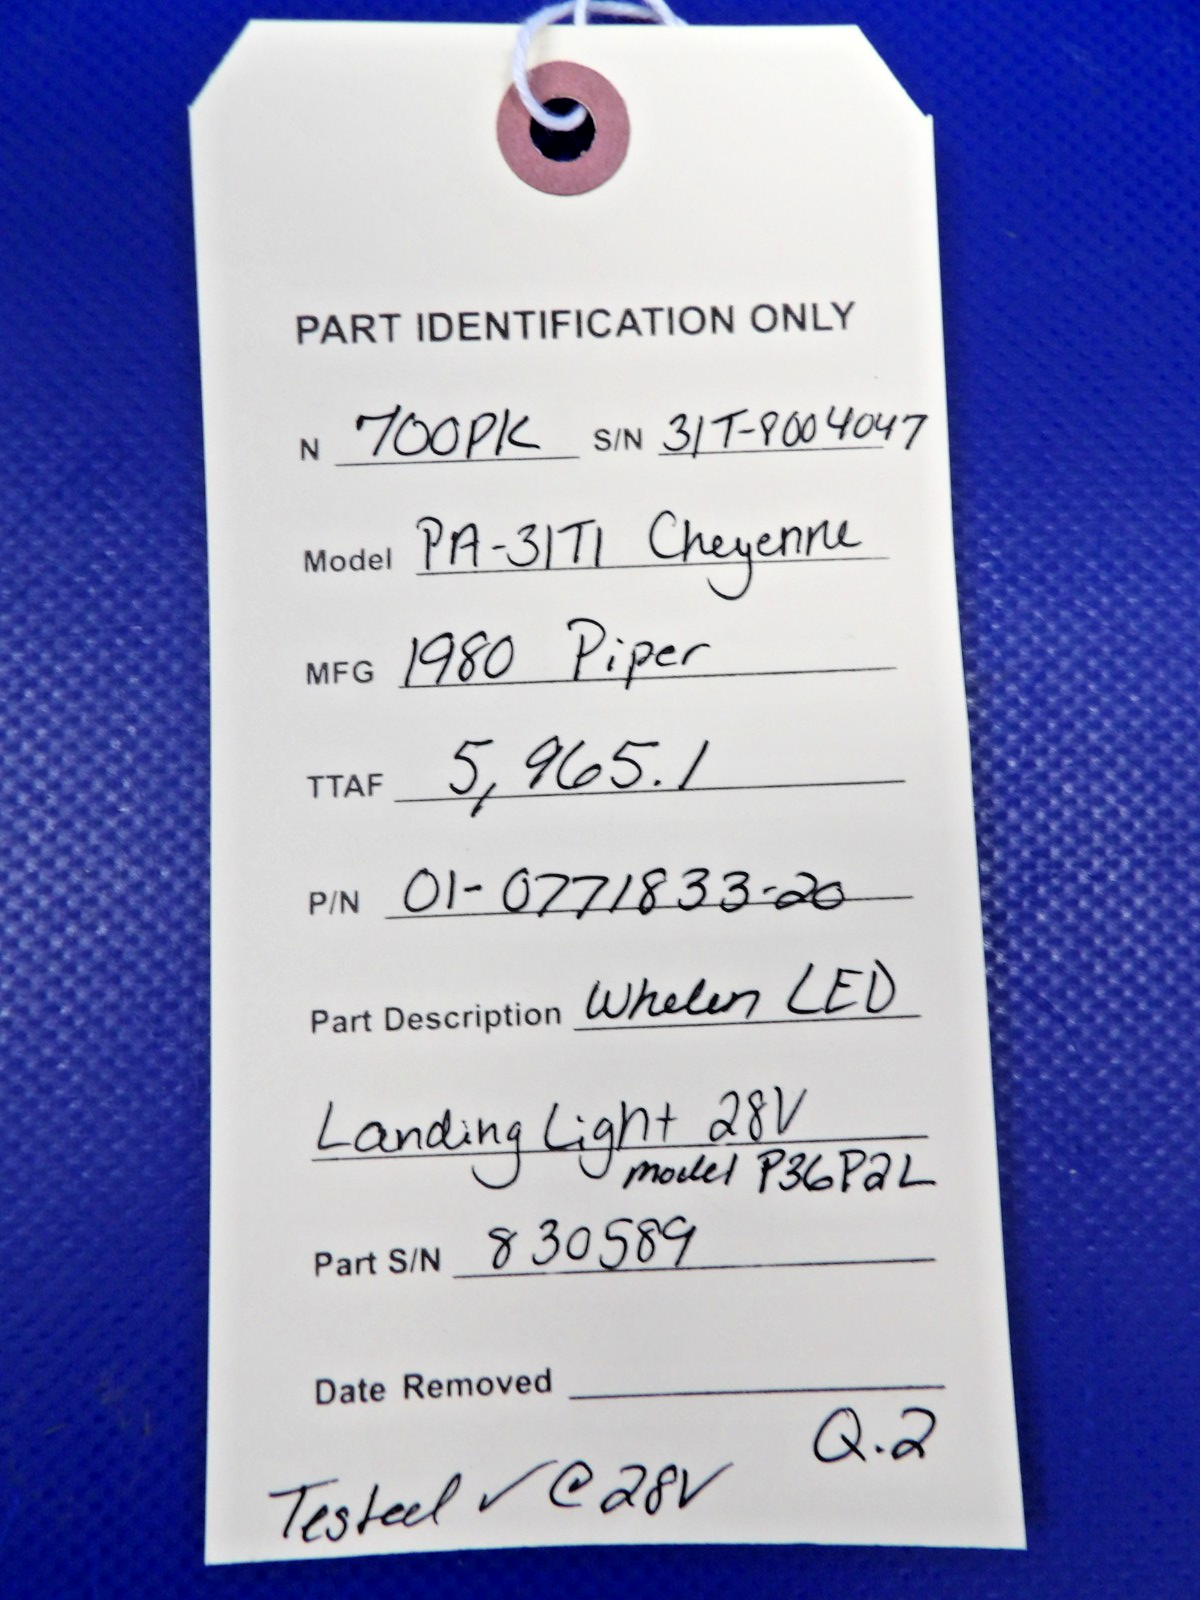 PART IDENTIFICATION ONLY
N 700PK S/N 31T-8004047
Model PA-31T1 Cheyenne
MFG 1980 Piper
TTAF 5,965.1
P/N 01-0771833-20
Part Description Whelen LED
Landing Light 28V
model P36P2L
Part S/N 830589
Date Removed
Q.2
Tested ✓ @ 28V